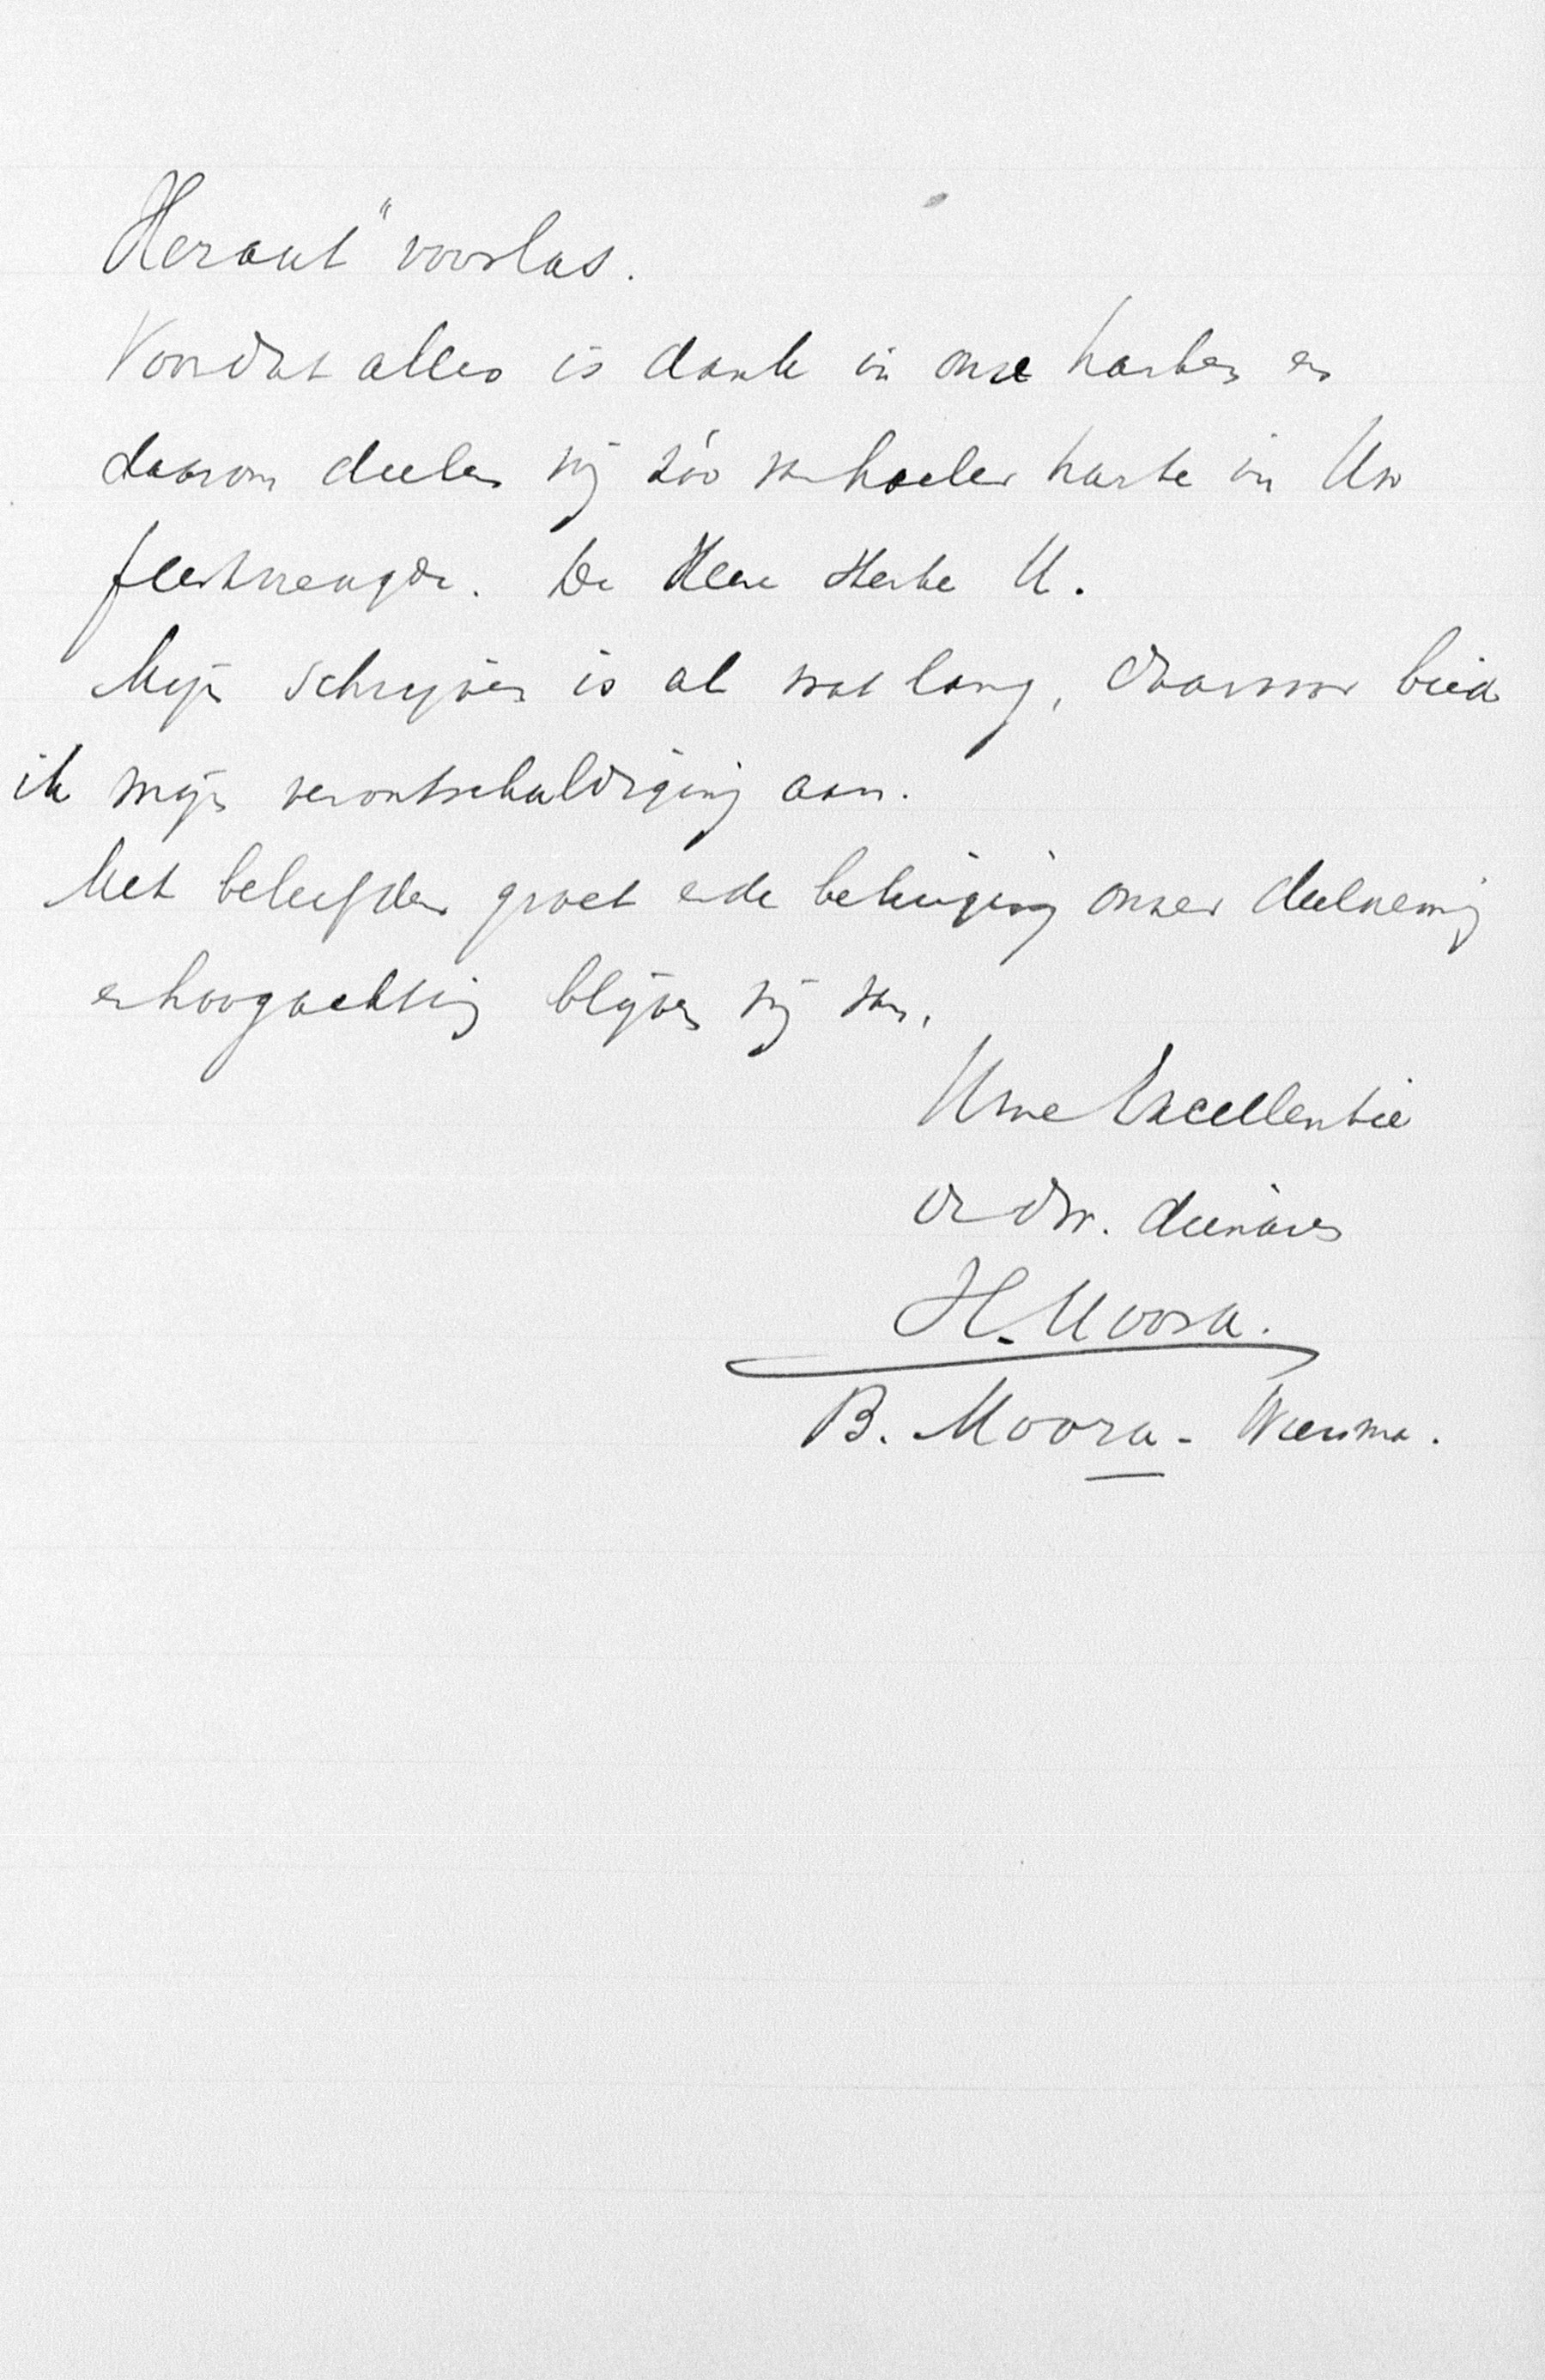 Heraut" voorlas.
Voor dat alles is dank in onze harten en
daarom deelen wij zóó van heeler harte in Uw
feestvreugde. De Heere sterke U.
Mijn schrijven is al wat lang, daarvoor bied
ik mijn verontschuldiging aan.
Met beleefden groet en de betuiging onzer deelneming
en hoogachting blijven wij van,
Uwe Excellentie
de dw. dienares
H. Moora.
B. Moora - Wiersma.